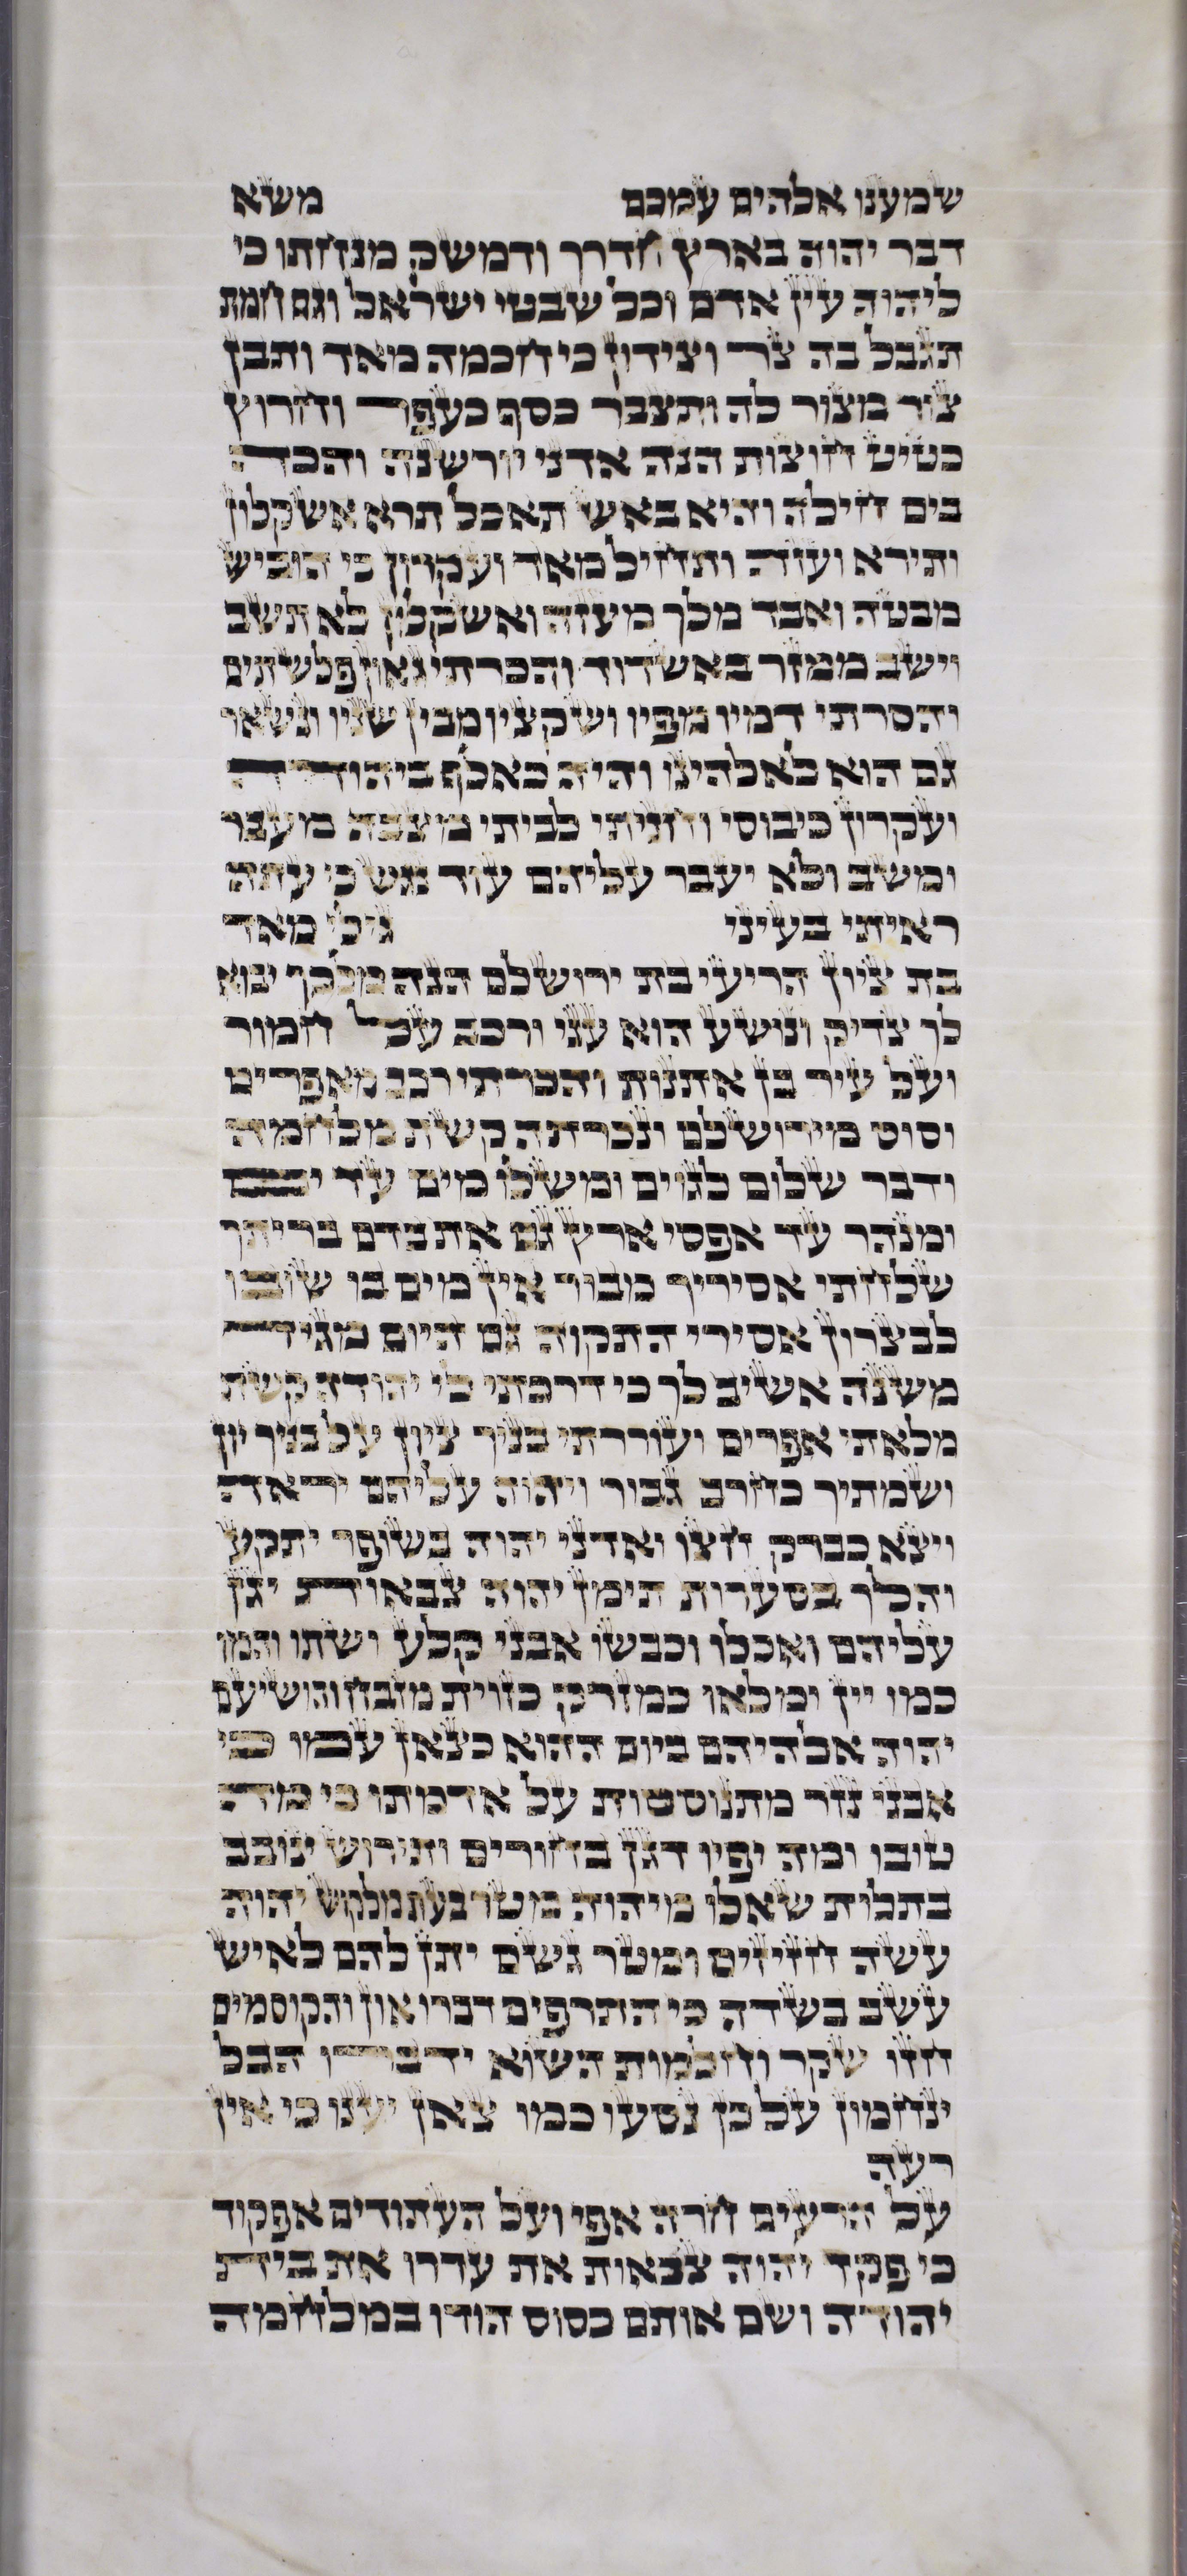 שמענו אלהים עמכם משא
דבר יהוה בארץ חדרך ודמשק מנחתו כי
ליהוה עין אדם וכל שבטי ישראל וגם חמת
תגבל בה צר וצידון כי חכמה מאד ותבן
צור מצור לה ותצבר כסף כעפר וחרוץ
כטיט חוצות הנה אדני יורשנה והכה
בים חילה והיא באש תאכל תרא אשקלון
ותירא ועזה ותחיל מאד ועקרון כי הוביש
מבטה ואבד מלך מעזה ואשקלון לא תשב
וישב ממזר באשדוד והכרתי גאון פלשתים
והסרתי דמיו מפיו ושקציו מבין שניו ונשאר
גם הוא לאלהינו והיה כאלף ביהודה
ועקרון כיבוסי וחניתי לביתי מצבה מעבר
ומשב ולא יעבר עליהם עוד נגש כי עתה
ראיתי בעיני גילי מאד
בת ציון הריעי בת ירושלם הנה מלכך יבוא
לך צדיק ונושע הוא עני ורכב על חמור
ועל עיר בן אתנות והכרתי רכב מאפרים
וסוס מירושלם ונכרתה קשת מלחמה
ודבר שלום לגוים ומשלו מים עד ים
ומנהר עד אפסי ארץ גם את בדם בריתך
שלחתי אסיריך מבור אין מים בו שובו
לבצרון אסירי התקוה גם היום מגיד
משנה אשיב לך כי דרכתי לי יהודה קשת
מלאתי אפרים ועוררתי בניך ציון על בניך יון
ושמתיך כחרב גבור ויהוה עליהם יראה
ויצא כברק חצו ואדני יהוה בשופר יתקע
והלך בסערות תימן יהוה צבאות יגן
עליהם ואכלו וכבשו אבני קלע ושתו והמו
כמו יין ומלאו כמזרק כזוית מזבח והושיעם
יהוה אלהיהם ביום ההוא כצאן עמו כי
אבני נזר מתנוססות על אדמתו כי מה
טובו ומה יפיו דגן בחורים ותירוש ינובב
בתלות שאלו מיהוה מטר בעת מלקוש יהוה
עשה חזיזים ומטר גשם יתן להם לאיש
עשב בשדה כי התרפים דברו און והקוסמים
חזו שקר וחלמות השוא ידברו הבל
ינחמון על כן נסעו כמו צאן יענו כי אין
רעה
על הרעים חרה אפי ועל העתודים אפקוד
כי פקד יהוה צבאות את עדרו את בית
יהודה ושם אותם כסוס הודו במלחמה